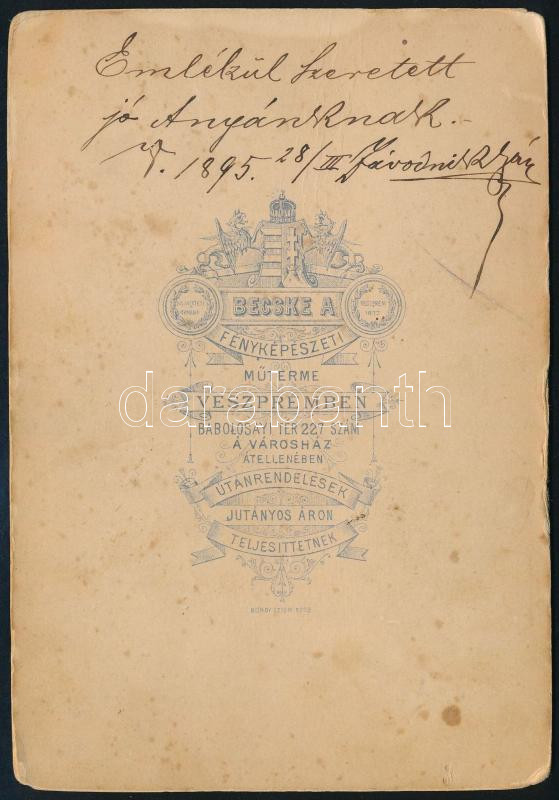 Emlékül Szeretett
jó Anyánknak.-
V. 1895. 28/III Závodnik
BECSKE A
FÉNYKÉPÉSZETI
MŰTERME
VESZPRÉMBEN
BABOLOSAYI TÉR 227 SZÁM
Á VÁROSHÁZ
ÁTELLENÉBEN
UTÁNRENDELÉSEK
JUTÁNYOS ÁRON
TELJESITTETNEK
darabanth